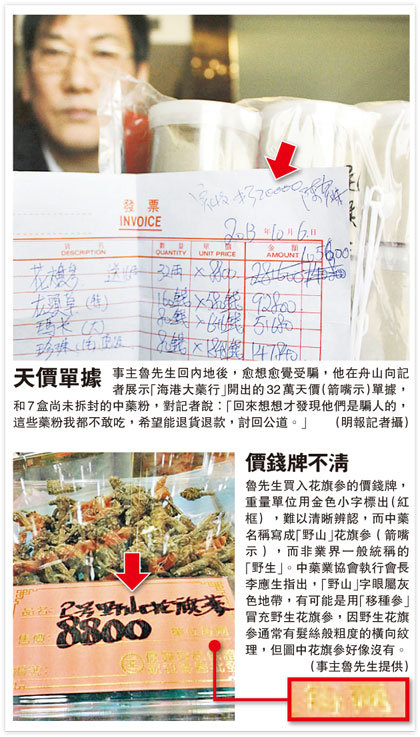 發票
INVOICE
2013年10月6日
品名 數量 單價 金額
DESCRIPTION QUANTITY UNIT PRICE AMOUNT
花旗參 32両 ×8800
160錢 ×580錢 92800
瑪卡
珍珠
天價單據
事主魯先生回內地後，愈想愈覺受騙，他在舟山向記
者展示「海港大藥行」開出的32萬天價(箭嘴示)單據，
和7盒尚未拆封的中藥粉，對記者說：「回來想想才發現他們是騙人的，
這些藥粉我都不敢吃，希望能退貨退款，討回公道。」
(明報記者攝)
價錢牌不淸
魯先生買入花旗參的價錢牌，
重量單位用金色小字標出(紅
框)，難以清晰辨認，而中藥
名稱寫成「野山」花旗參(箭嘴
示)，而非業界一般統稱的
「野生」。中藥業協會執行會長
李應生指出，「野山」字眼屬灰
色地帶，有可能是用「移種參」
冒充野生花旗參，因野生花旗
參通常有髮絲般粗度的橫向紋
理，但圖中花旗參好像沒有。
(事主魯先生提供)
品名: 野山花旗參
售價: 8800